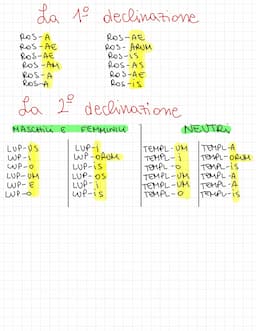 La 1° declinazione
ROS-A ROS-AE
ROS-AE ROS-ARUM
ROS-AE ROS-iS
ROS-AM ROS-AS
ROS-A ROS-AE
ROS-A ROS-iS
La 2° declinazione
MASCHILI E FEMMINILI NEUTRI
LUP-US LUP-i TEMPL-UM TEMPL-A
LUP-i LUP-ORUM TEMPL-i TEMPL-ORUM
LUP-O LUP-iS TEMPL-O TEMPL-iS
LUP-UM LUP-OS TEMPL-UM TEMPL-A
LUP-E LUP-i TEMPL-UM TEMPL-A
LUP-O LUP-iS TEMPL-O TEMPL-iS